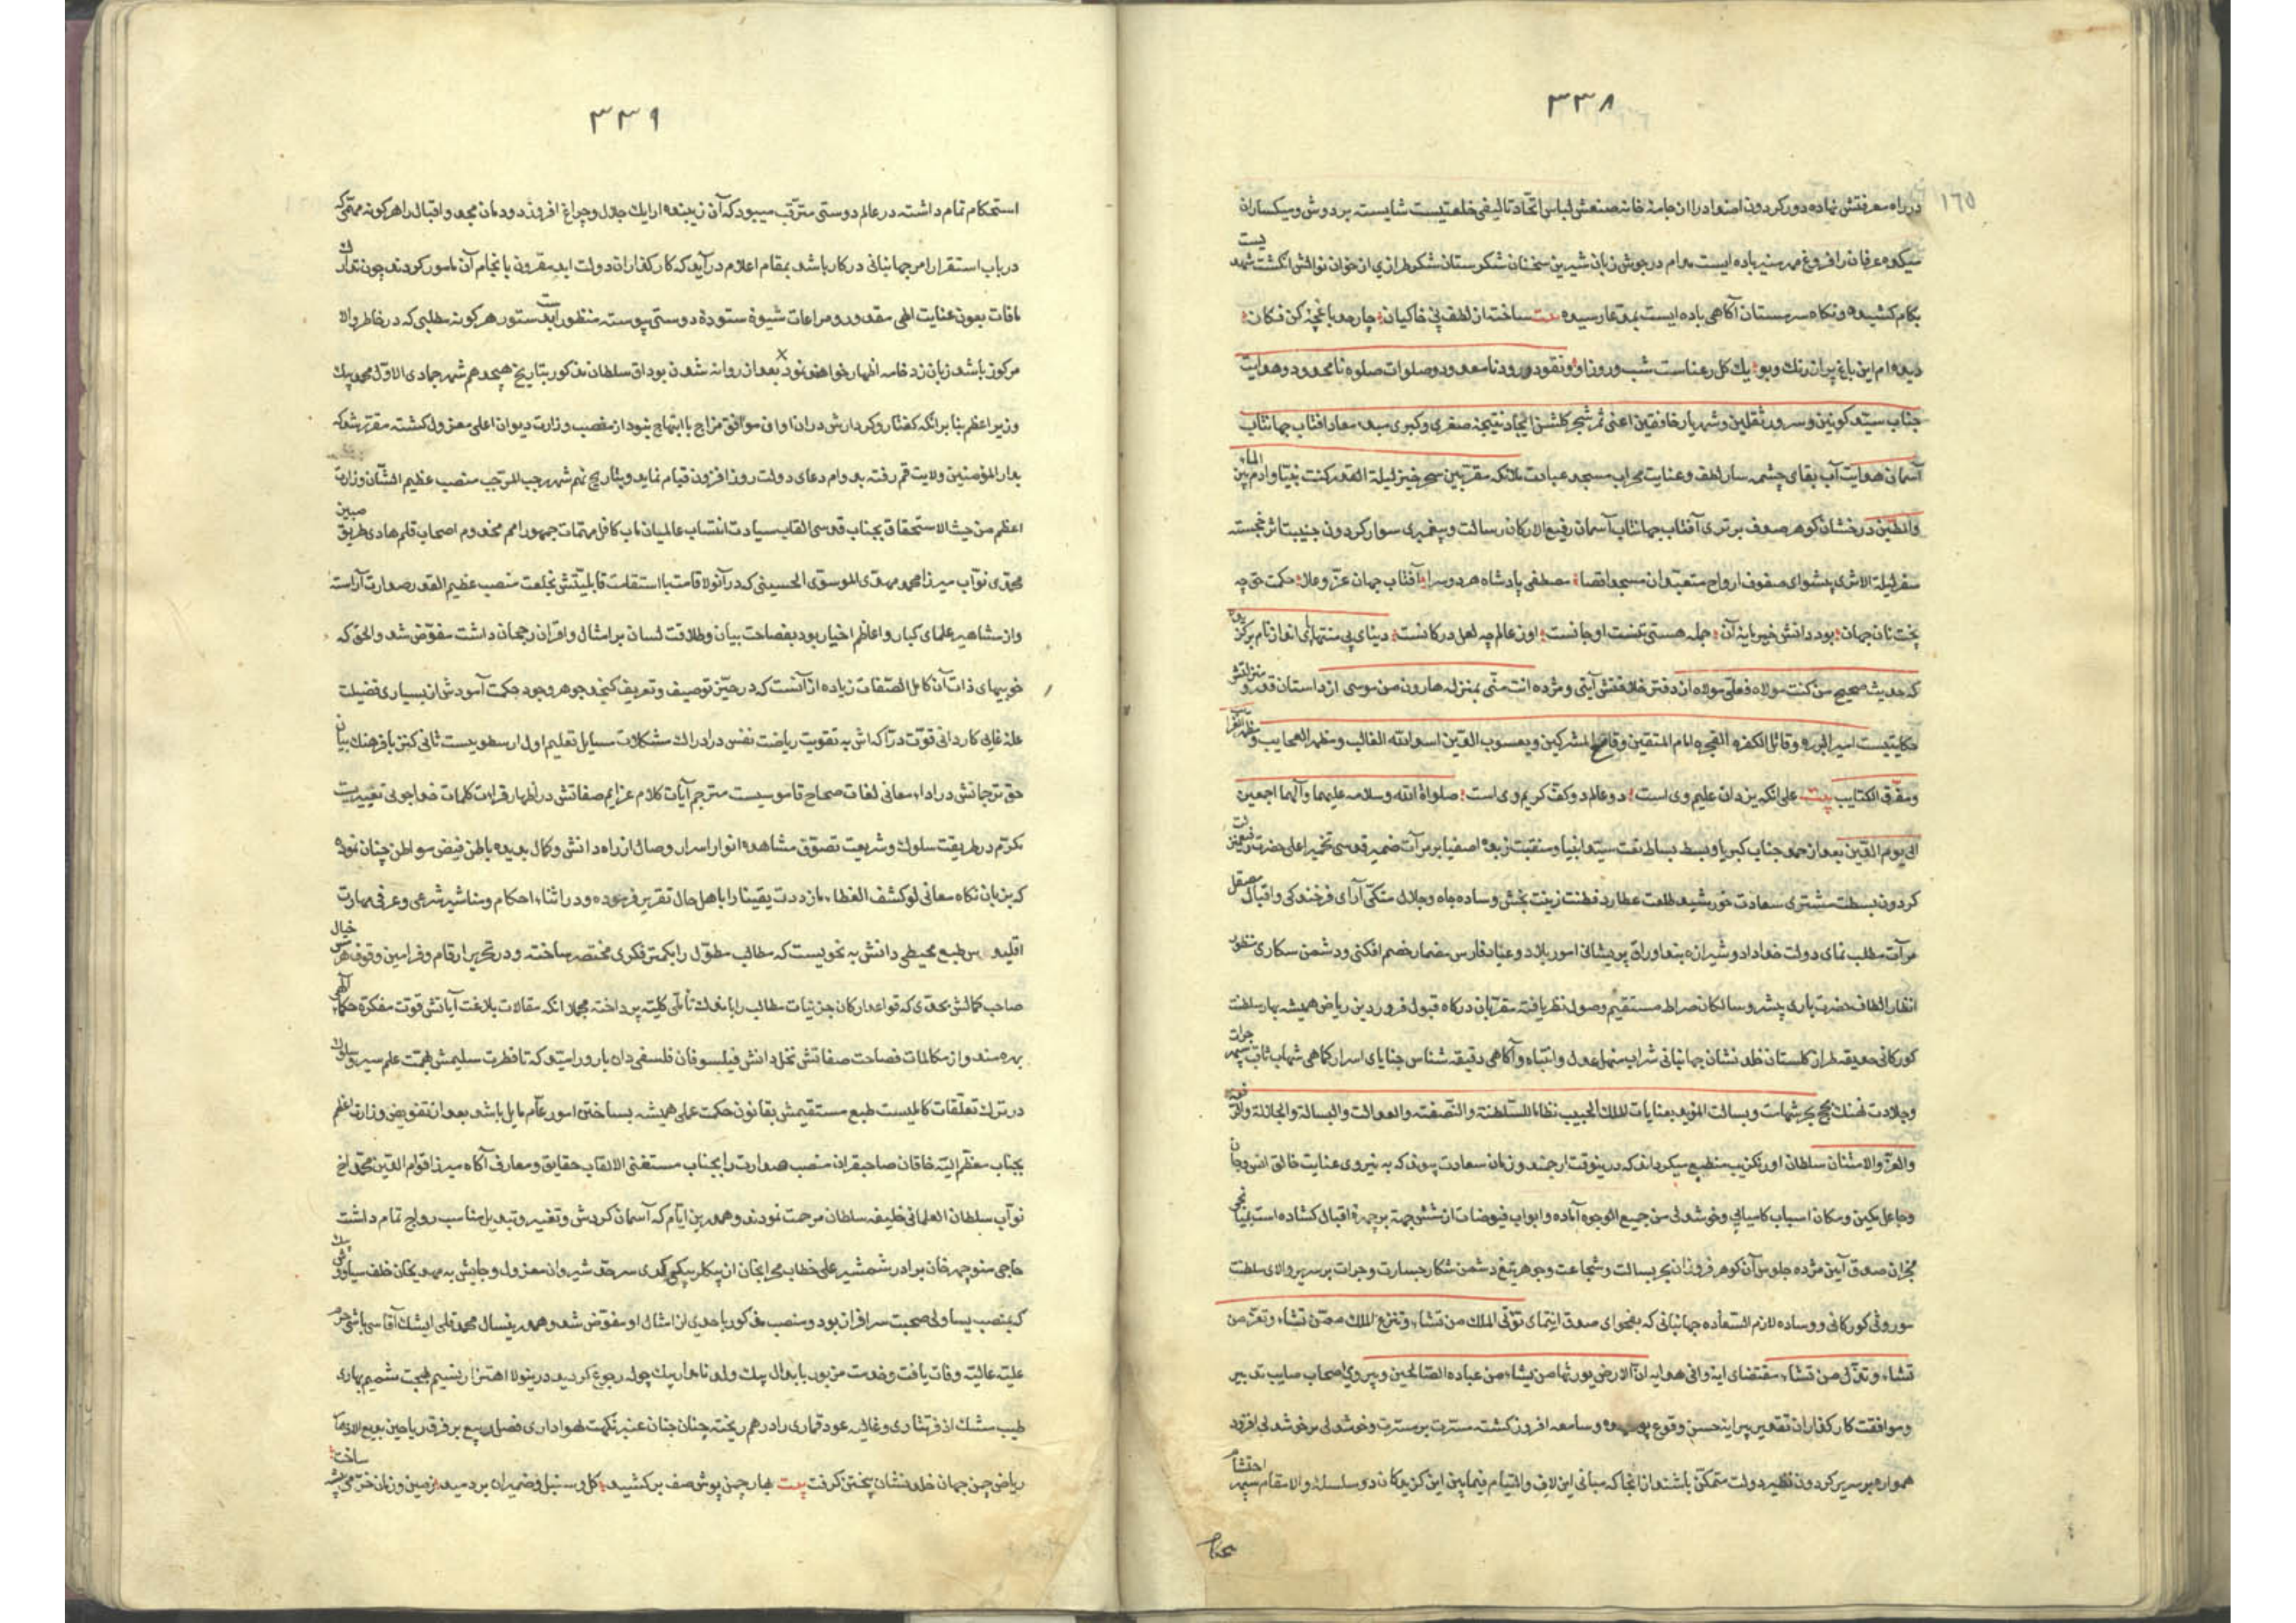 ٣٣٨
١٦٥
در راه معرفتش نهاده دور کردون اضداد را از جامهٔ خانه صنعش لباس اتحاد تالیفی خلعتیست شایسته بر دوش و سبکساران
میکده عرفان را فروغ مهر منیر باده ایست مدام در جوش زبان شیرین سخنان شکرستان شکر طرازی از خوان نوالش انگشت شهد یست
بکام کشیده و نکاه سرمستان آکاهی باده ایست بیت ساخته از لطف پی خاکیان چار حد باغچهٔ کن فکان
دیده ام این باغ پر از رنک و بو یك کل رعناست شب و روز او و نقود درود نامعدود و صلوات صلوه نامحدود و هدایت
جناب سید کونین و سرور ثقلین و شهریار خافقین اعنی ثمر شجر کلشن ایجاد نتیجهٔ صغری و کبری مبدء معاد افتاب جهانتاب
آسمان هدایت آب بقای چشمه سار لطف و عنایت محراب مسجد عبادت ملائکه مقربین سحر خیز لیلة القدر کنت نبیا و ادم بین الماء
والطین درخشان کوهر صدف برتری آفتاب جهانتاب آسمان رفیع الارکان رسالت و پیغمبری سوار کردون جنیبت اثر خجسته
سفر لیلة الاسری پیشوای صفوف ارواح متعبدان مسجد اقصا مصطفی پادشاه هر دو سرا آفتاب جهان عز و علا حکمت حق چه
پخت نان جهان بود دانش خمیر مایه آن جمله هستی تنست او جانست او ز عالم چه لعل در کانست
که حدیث صحیح من کنت مولاه فعلی مولاه از دفتر خلافتش آیتی و مژده انت منی بمنزله هارون من موسی از داستان قدر و منزلتش
حکایتیست امیر البرره و قاتل الکفره الفجره امام المتقین و قامع المشرکین و یعسوب الدین اسد الله الغالب و مظهر العجایب و مظهر الغرایب
و مفرق الکتایب بیت علی انکه یزدان علیم وی است دو عالم دو کف کریم وی است صلواة الله و سلامه علیهما و آلهما اجمعین
الی یوم الدین بعد از حمد جناب کبریا و بسط بساط نعت سید انبیا و منقبت زبده اصفیا بر مرآت ضمیر قدسی تخمیر اعلی حضرت
کردون بسطت مشتری سعادت خورشید طلعت عطارد فطنت زینت بخش وساده جاه و جلال متکی آرای فرخندکی و اقبال صیقل
مرآت مطلب نمای دولت خداداد و شیرازه بند اوراق پریشانی امور بلاد و عباد فارس مضمار خصم افکنی و دشمن سکاری منظور
انظار الطاف حضرت باری چشرو سالکان صراط مستقیم وصول نظر یافته مقربان درکاه قبول فروردین ریاض همیشه بهار سلطنت
کورکانی حدیقه طراز کلستان خلد نشان جهانبانی شراب منهل عدل و انتباه و آکاهی دقیقه شناس خبایای اسرار کماهی شهاب ثاقب سپهر جرات
و جلادت نهنك لجج بحر شهامت و بسالت المؤید بعنایات الملك الحبیب نظاما للسلطنة و النصفته و العدالت و البسالة و الجلالة
والعز والامتنان سلطان اورنکزیب منطبع میکرداند که درینوقت ارجمند و زمان سعادت پیوند که به نیروی عنایت خالق انس و جان
و جاعل مکین و مکان اسباب کامیابی و خوشدلی من جمیع الوجوه آماده و ابواب فیوضات از شش جهة بر چهرهٔ اقبال کشاده است
مخبران صدق آیین مژده جلوس آن کوهر فروزان بحر بسالت و شجاعت و جوهر تیغ دشمن شکار جسارت و جرات بر سریر والای سلطنت
موروثی کورکانی و وساده لازم السعاده جهانبانی که بفحوای صدق انتمای تؤتی الملك من تشاء و تنزع الملك ممن تشاء و تعز من
تشاء و تذل من تشاء مقتضای ایه وافی هدایه ان الارض یورثها من یشاء من عباده الصالحین و پیروی اصحاب صایب تدبیر
و موافقت کارکذاران تقدیر پیرایه حسن وقوع پوشیده و سامعه افروز کشته مسرت بر مسرت و خوشدلی بر خوشدلی افزود
همواره بر سریر کردون نظیر دولت متمکن باشند از انجا که مبانی این لاف و التیام فیمابین این کزیدکان دو سلسله والامقام سپهر احتشام
٣٣٩
استحکام تمام داشته در عالم دوستی مترقب میبود که آن زیبنده ارایك جلال و چراغ افروز دودمان مجد و اقبال را هر کونه مهمی که
در باب استقرار امر جهانبانی در کار باشد بمقام اعلام در آید که کارکذاران دولت ابد مقرون بانجام آن مامور کردند چون تدارك
مافات بعون عنایت الهی مقدور و مراعات شیوهٔ ستودهٔ دوستی پیوسته منظور است هر کونه مطلبی که در خاطر والا
مرکوز باشد زبان زد خامه اظهار خواهند نمود بعد از روانه شدن بوداق سلطان مذکور بتاریخ هیجدهم شهر جمادی الاول محمد بیك
وزیر اعظم بنابر انکه کفتار و کردارش در ان اوان موافق مزاج با ابتهاج نبود از منصب وزارت دیوان اعلی معزول کشته مقرر شد که
بدار المؤمنین ولایت قم رفته بدوام دعای دولت روز افزون قیام نماید و بتاریخ نهم شهر رجب المرجب منصب عظیم الشان وزارت
اعظم من حیث الاستحقاق بجناب قدوسی القاب سیادت انتساب عالمیان ماب کافل مهمات جمهور امم مخدوم اصحاب قلم هادی طریق مبین
محمدی نواب میرزا محمد مهدی الموسوی الحسینی که در آنولا قامت با استقامت قابلیتش بخلعت منصب عظیم القدر صدارت آراسته
و از مشاهیر علمای کبار و اعاظم اخیار بود بفصاحت بیان و طلاقت لسان بر امثال و اقران رجحان داشت مفوض شد و الحق که
خوبیهای ذات آن کامل الصفات زیاده از آنست که در حیز توصیف و تعریف کنجد جوهر وجود حکمت آمودش از بسیاری فضیلت
علة غایی کاردانی قوت دراکه اش به تقویت ریاضت نفس در ادراك مشکلات مسایل تعلیم اول ارسطویست ثانی
حق ترجمانش در اداء معانی لغات صحاح قاموسیست مترجم آیات کلام عزایم صفاتش در اظهار قراات کلمات خداجویی
نکرتم در طریقت سلوك و شریعت تصوف مشاهده انوار اسرار وصال از راه دانش و کمال بدیده باطن فیض مواطن چنان نموده
که بزبان نکاه معانی لو کشف الغطاء ما زددت یقینا را باهل حال تقریر فرموده و در اثناء احکام و مناشیر شرعی و عرفی مهارت
طبع محیطی دانش به نحویست که مطالب مطول را بکمتر فکری مختصر ساخته و در تحریر ارقام و فرامین وقوف خیال
صاحب کمالش بحدی که قواعد ارکان جزئیات مطالب را باندك تأملی کلیته پرداخته مجملا انکه مقالات بلاغت آیاتش قوت مفکره حکما
بهره مند و از مکالمات فصاحت صفاتش نخل دانش فیلسوفان فلسفی دان بارور است و که تا فطرت سلیمش بهمت علم سیر و سلوك
در ترك تعلقات کاملیست طبع مستقیمش بقانون حکمت عملی همیشه بساختن امور عام مایل باشد بعد از تفویض وزارت اعظم
بجناب معظم الیه خاقان صاحبقران منصب صدارت را بجناب مستغنی الالقاب حقایق و معارف آکاه میرزا قوام الدین محمد اخ
نواب سلطان العلمائی خلیفه سلطان مرحمت نمودند و همدرین ایام که آسمان کردش و تغییر و تبدیل مناسب رواج تمام داشت
حاجی منوچهر خان برادر شمشیر علی خطاب محرابخان از بیکلربیکی کری سرحد شیروان معزول و جایش به مهدیخان خلف سیاوش بیك
که بمنصب یساولی صحبت سرافراز بود و منصب مذکور باحدی از امثال او مفوض شد و همدرینسال محمد قلی ایشك آقاسی باشی حرم
علیه عالیه وفات یافت و خدمت مزبور بابدال بیك ولد نامدار بیك چوله رجوع کردید درینولا اهتزار نسیم بهجت شمیم بهاری
طیب مشك اذفر تتاری و غالیه عود قماری را در هم ریخته چنان جنان عنبر نکهت هواداری فصل ربیع بر فرق ریاحین بدیع
ریاض چمن جهان خلد نشان بیختن کرفت بیت بهار چمن پوش صف بر کشید کل و سنبل و ضیمران بر دمید زمین و زمان خرمی ساخت